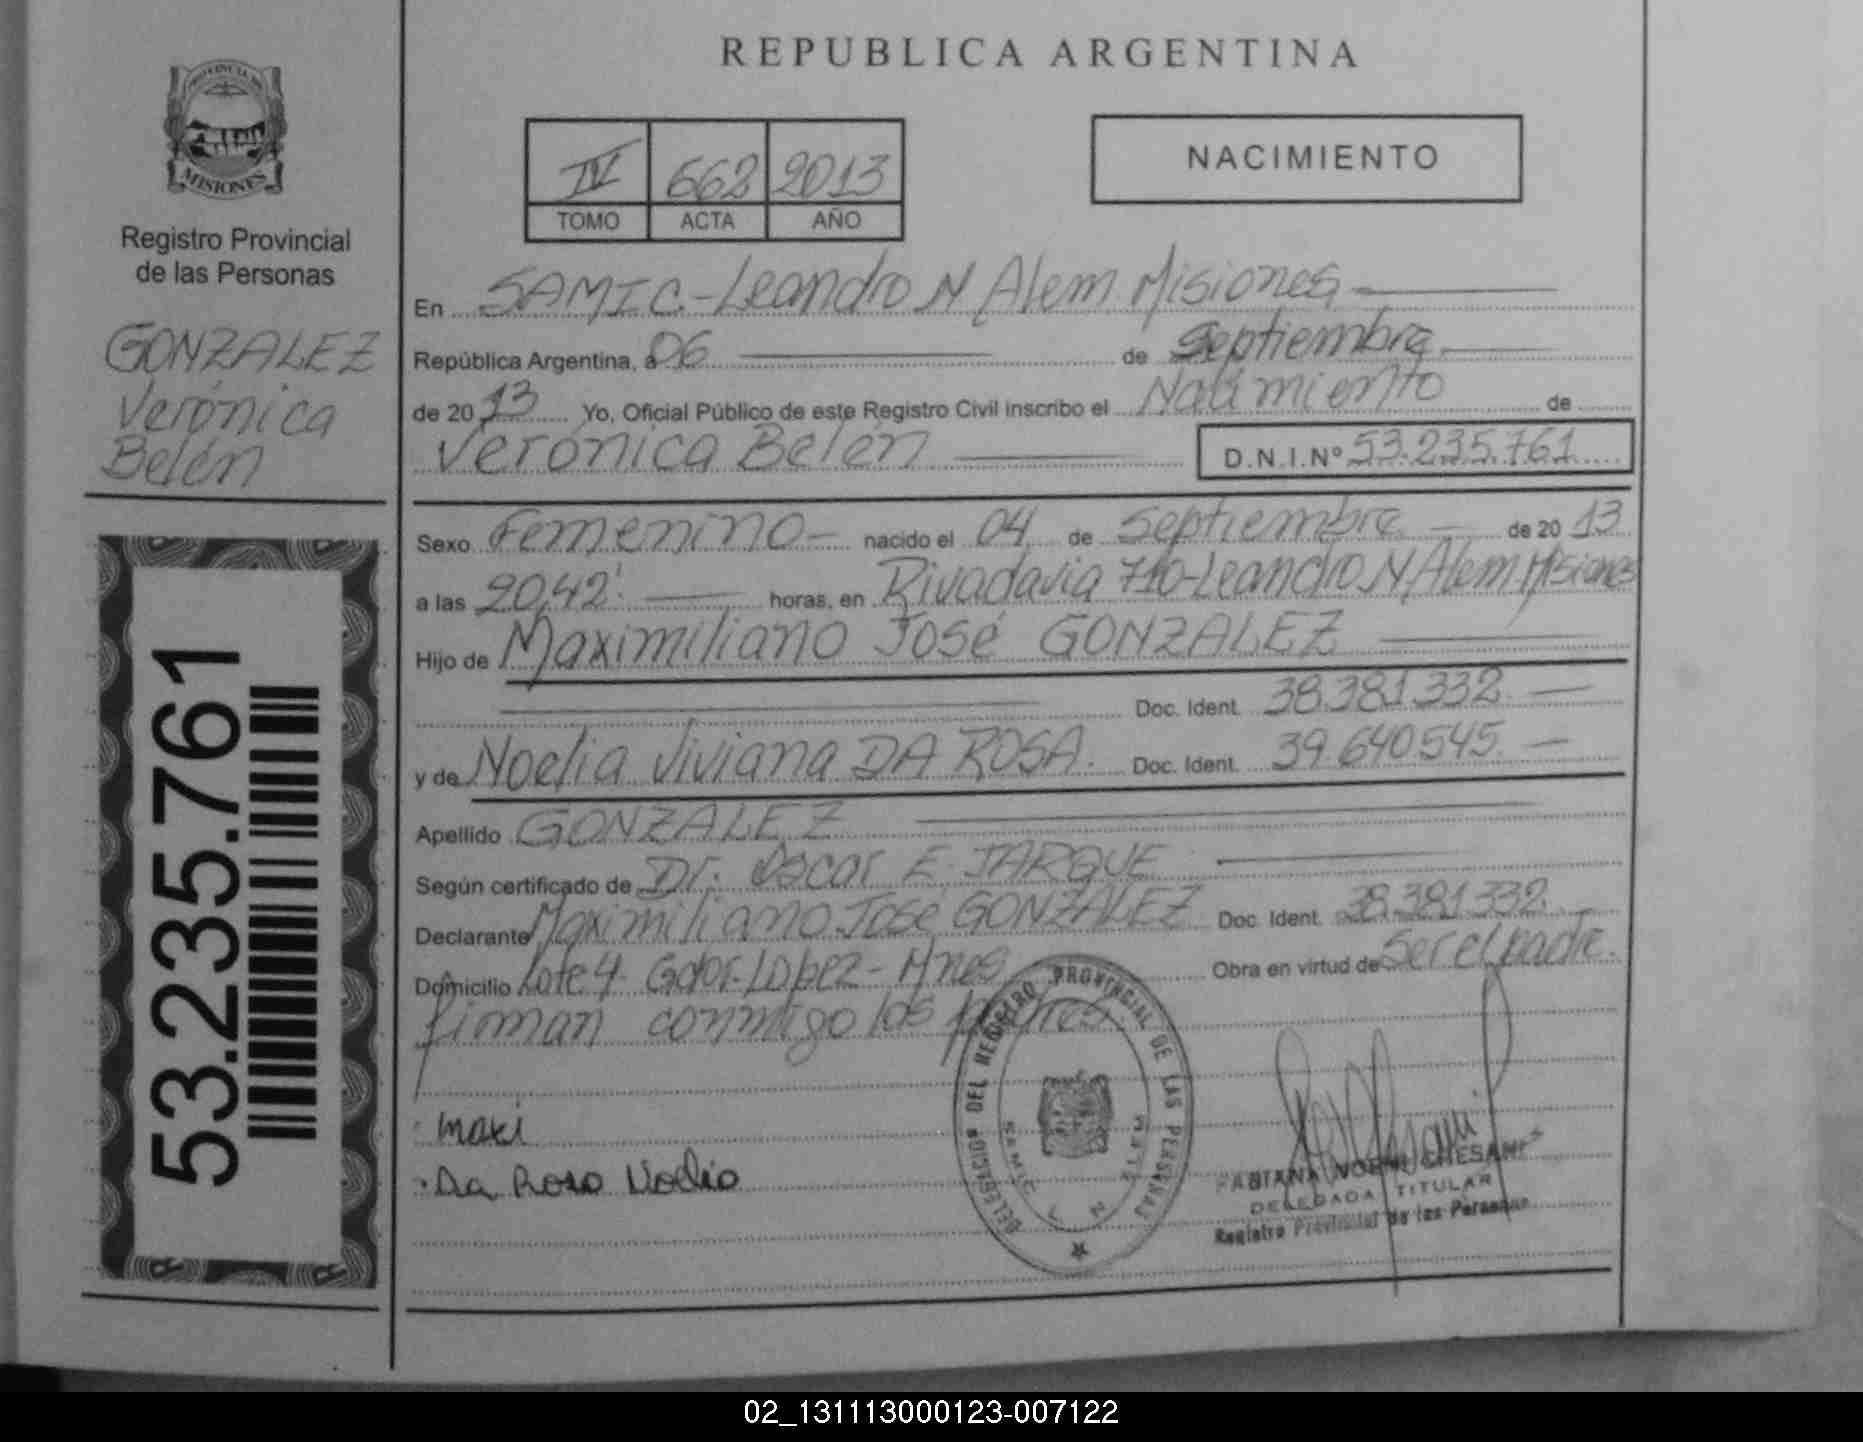 REPUBLICA ARGENTINA
PROVINCIA DE
MISIONES
Registro Provincial
de las Personas
GONZALEZ
Verónica
Belén
53.235.761
IV 662 2013
TOMO ACTA AÑO
NACIMIENTO
En SAMIC-Leandro N Alem Misiones
República Argentina, a 06 de Septiembre
de 20 13 Yo, Oficial Público de este Registro Civil inscribo el Nacimiento de
Verónica Belén D.N.I.Nº 53.235.761
Sexo Femenino nacido el 04 de Septiembre de 20 13
a las 20,42' horas, en Rivadavia 710-Leandro N Alem Misiones
Hijo de Maximiliano José GONZALEZ
Doc. Ident. 38.381.332
y de Noelia Viviana DA ROSA. Doc. Ident. 39.640.545.
Apellido GONZALEZ
Según certificado de Dr. Oscar E. JARQUE
Declarante Maximiliano José GONZALEZ Doc. Ident. 38.381.332.
Domicilio Lote 4. Gdor. López - Mnes Obra en virtud de ser el padre.
firman conmigo los padres.
maxi
Da Rosa Noelia
DELEGACION DEL REGISTRO PROVINCIAL DE LAS PERSONAS
SAMIC
FABIANA NOEMI
DELEGADA TITULAR
Registro Provincial de las Personas
02_131113000123-007122